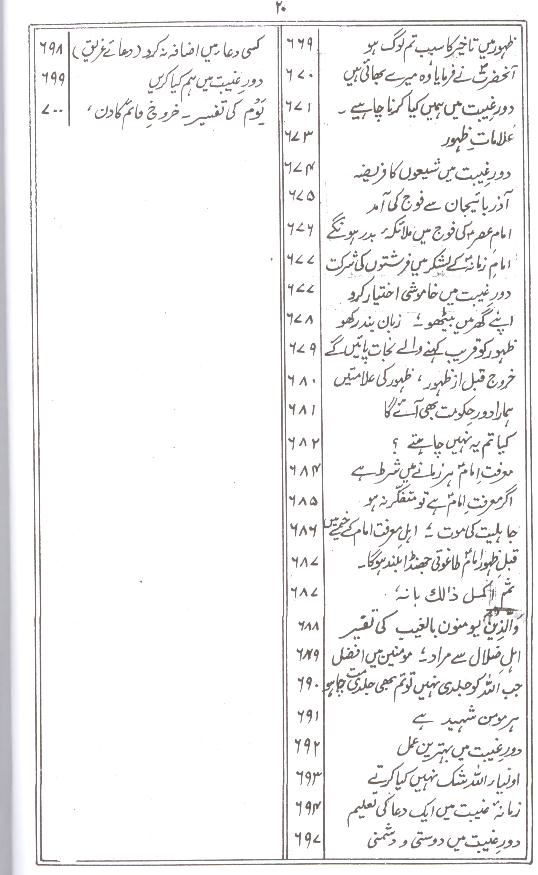 ۲۰
ظہور میں تاخیر کا سبب تم لوگ ہو ۶۶۹
آنحضرتؐ نے فرمایا وہ میرے بھائی ہیں ۶۷۰
دورِ غیبت میں ہمیں کیا کرنا چاہیے ۔ ۶۷۱
علاماتِ ظہور ۶۷۳
دورِ غیبت میں شیعوں کا فریضہ ۶۷۴
آذربائیجان سے فوج کی آمد ۶۷۵
امامِ عصرؑ کی فوج میں ملائکۂ بدر ہونگے ۶۷۶
امامِ زمانہؑ کے لشکر میں فرشتوں کی شرکت ۶۷۷
دورِ غیبت میں خاموشی اختیار کرو ۶۷۷
اپنے گھر میں بیٹھو ، زبان بند رکھو ۶۷۸
ظہور کو قریب کہنے والے نجات پائیں گے ۶۷۹
خروج قبل از ظہور ، ظہور کی علامتیں ۶۸۰
ہمارا دورِ حکومت بھی آئے گا ۶۸۱
کیا تم یہ نہیں چاہتے ؟ ۶۸۲
معرفتِ امامؑ ہر زمانے میں شرط ہے ۶۸۴
اگر معرفتِ امامؑ ہے تو متفکر نہ ہو ۶۸۵
جاہلیت کی موت ، اہلِ معرفت امام کے خیمے میں ۶۸۶
قبل ظہور امامؑ طاغوتی جھنڈا بلند ہوگا۔ ۶۸۷
ثمّ اکمل ذالک بانہ ۶۸۷
والذین یومنون بالغیب کی تفسیر ۶۸۸
اہلِ ضلال سے مراد ، مومنین میں افضل ۶۸۹
جب اللہ کو جلدی نہیں تو تم بھی جلدی مت چاہو ۶۹۰
ہر مومن شہید ہے ۶۹۱
دورِ غیبت میں بہترین عمل ۶۹۲
اولیاء اللہ شک نہیں کیا کرتے ۶۹۳
زمانۂ غیبت میں ایک دعا کی تعلیم ۶۹۴
دورِ غیبت میں دوستی و دشمنی ۶۹۷
کسی دعا میں اضافہ نہ کرو (دعائے غریق) ۶۹۸
دورِ غیبت میں ہم کیا کریں ۶۹۹
یَوْم کی تفسیر ۔ خروجِ قائمؑ کا دن ، ۷۰۰